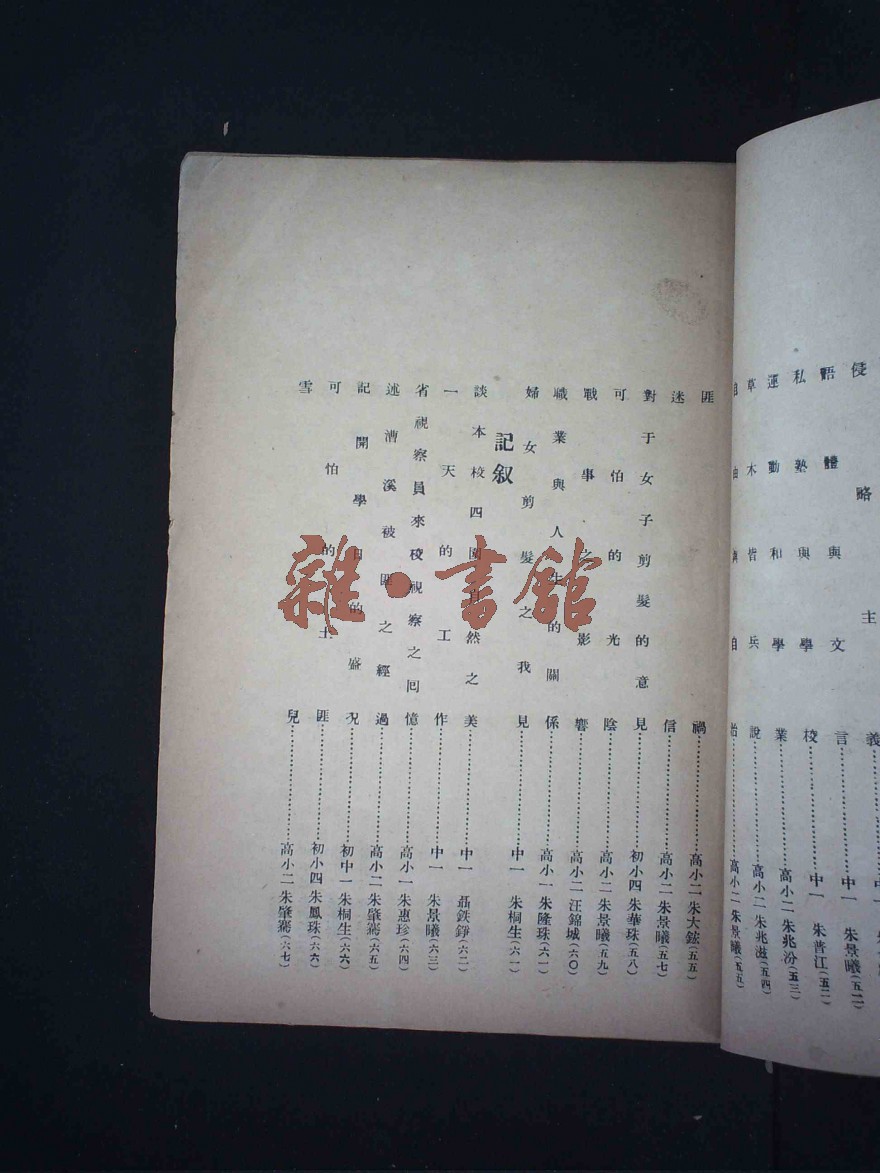 侵略主義
語體與文言…中一 朱景曦(五二)
私塾與學校…中一 朱普江(五二)
運動和學業…高小二 朱兆汾(五三)
草木皆兵說…高小二 朱兆滋(五四)
自由真自…高小二 朱景曦(五五)
匪禍…高小二 朱大鉉(五五)
迷信…高小二 朱景曦(五七)
對于女子剪髮的意見…初小四 朱華珠(五八)
可怕的光陰…高小二 朱景曦(五九)
戰事之影響…高小二 汪錦城(六〇)
職業與人生的關係…高小一 朱隆珠(六一)
婦女剪髮之我見…中一 朱桐生(六一)
記叙
談本校四圍自然之美…中一 聶鉄錚(六二)
一天的工作…中一 朱景曦(六三)
省視察員來校視察之回憶…高小一 朱惠珍(六四)
述漕溪被匪之經過…高小二 朱肇騫(六五)
記開學日的盛况…初中一 朱桐生(六六)
可怕的土匪…初小四 朱鳳珠(六六)
雪兒…高小二 朱肇騫(六七)
雜·書館